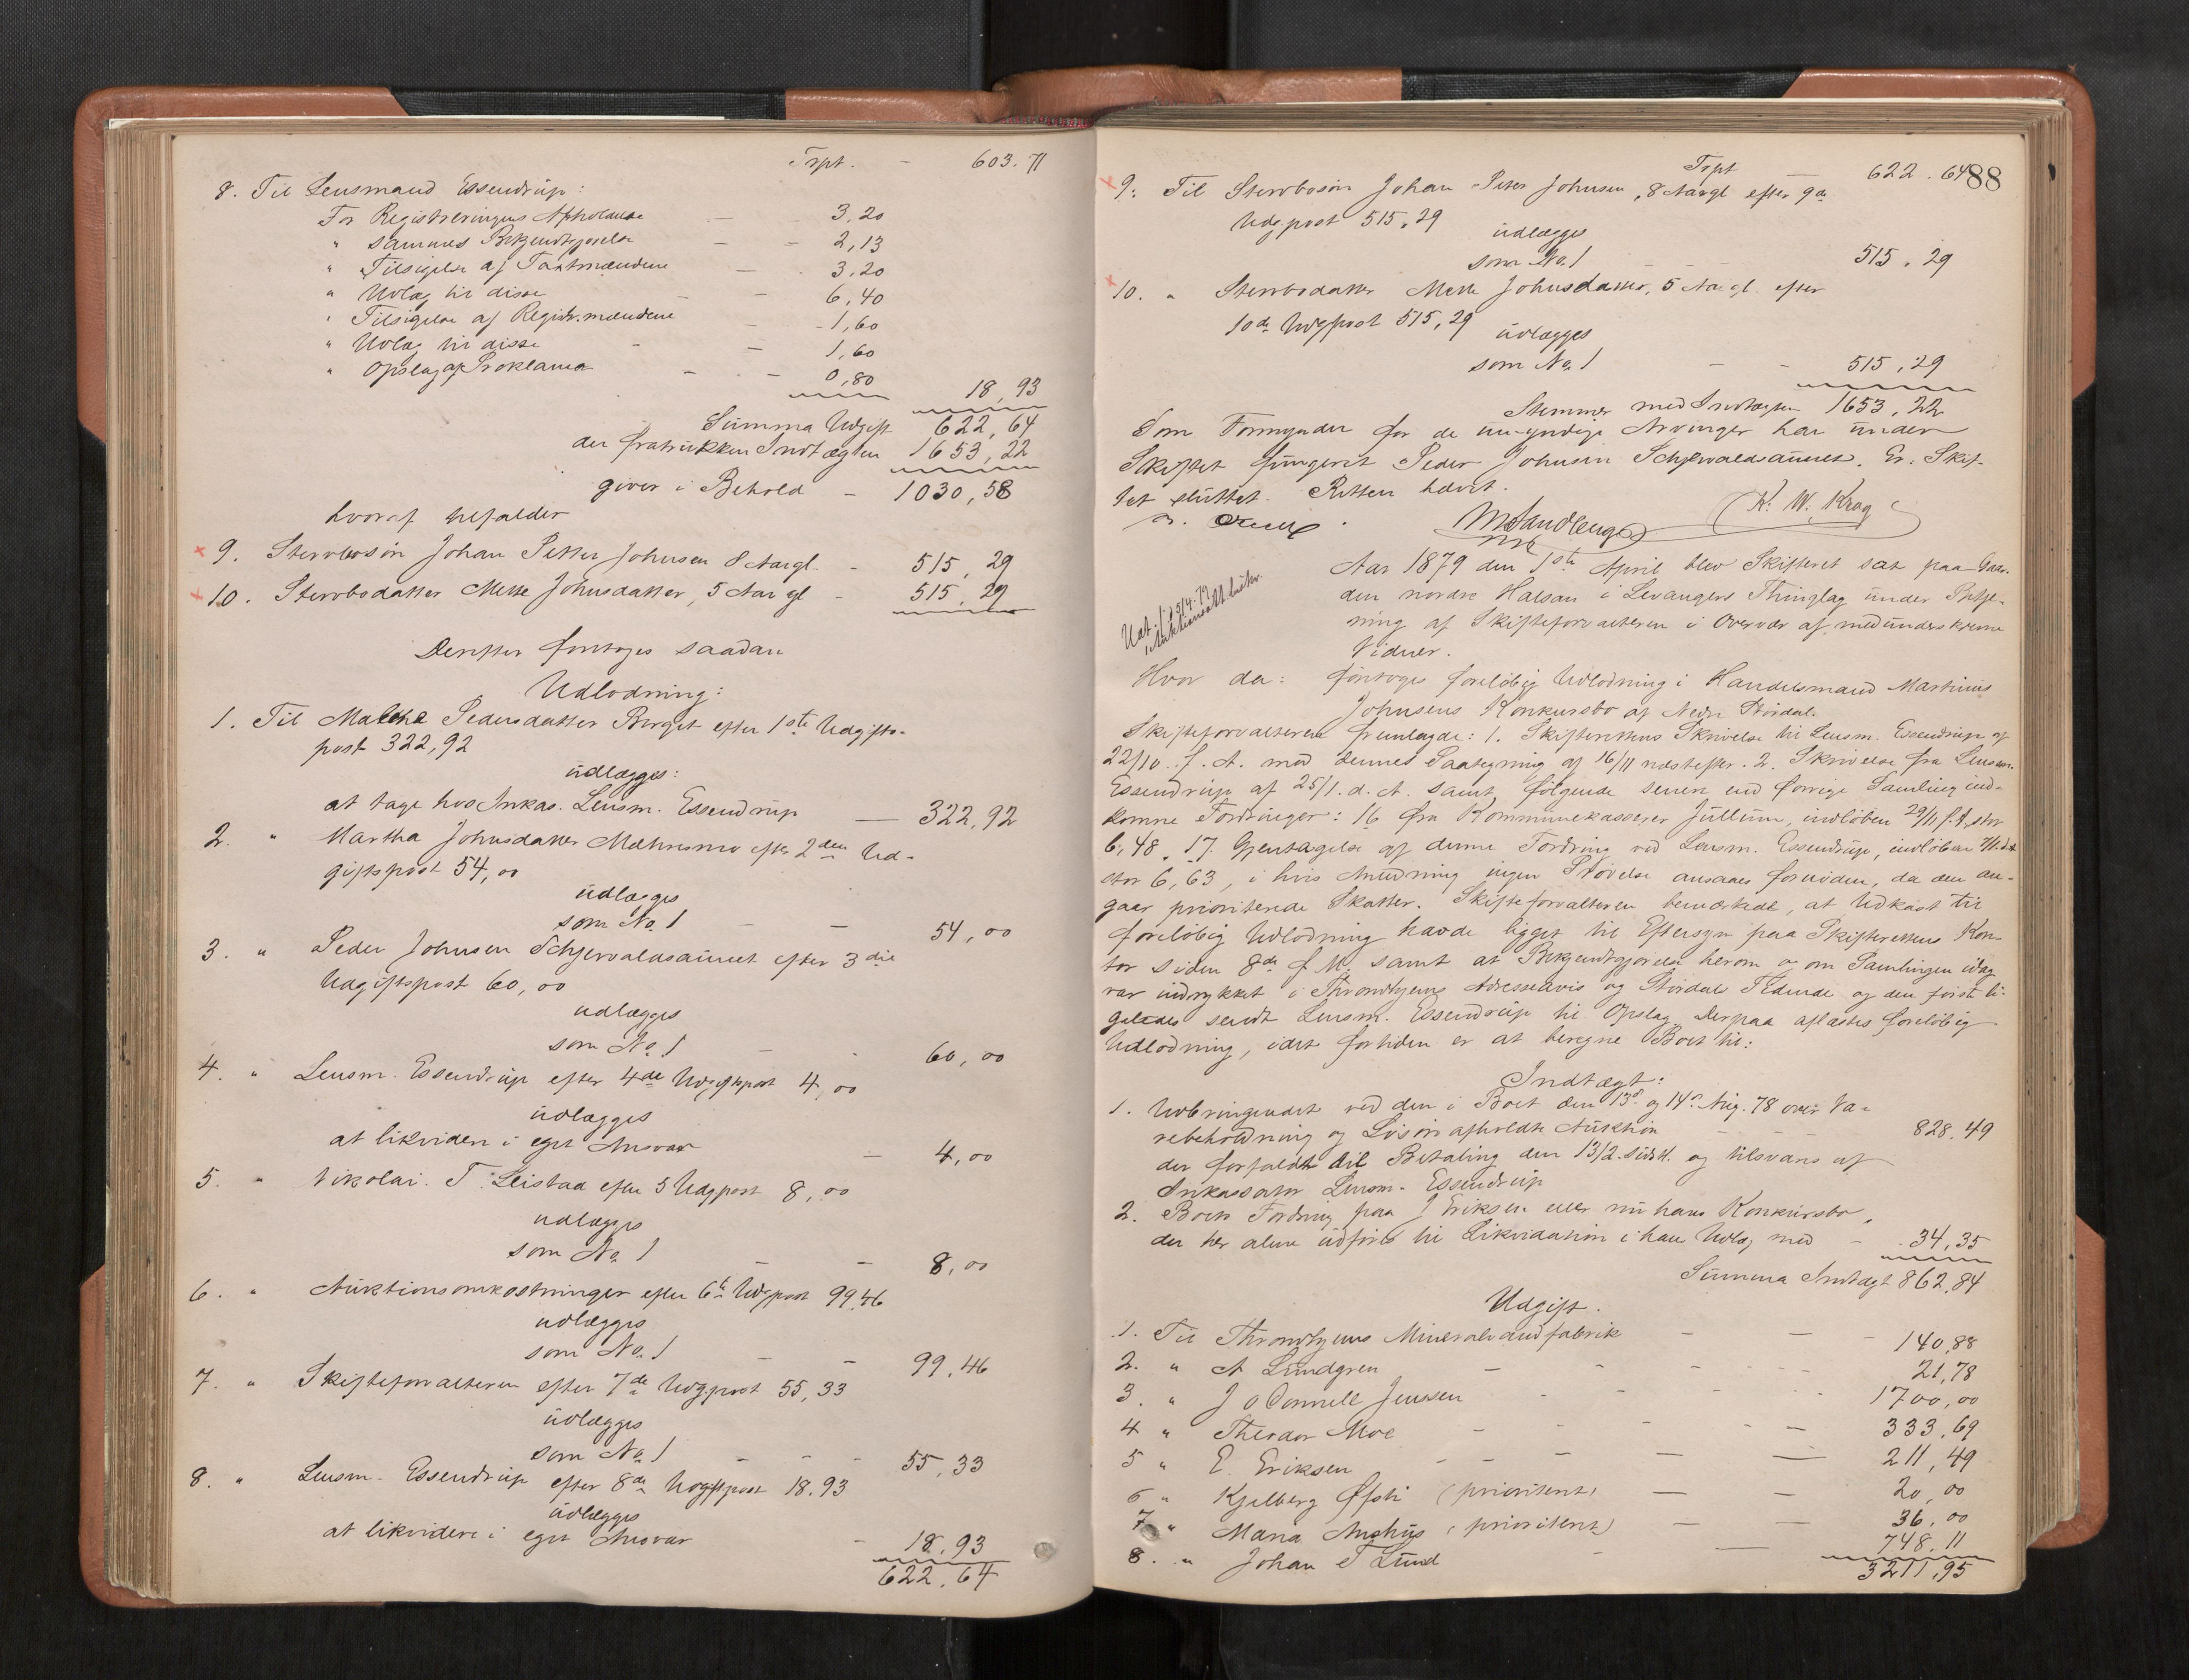 Trpt. - 603.71
8. Til Lensmand Essendrup:
For Registreringens Afholdelse - 3.20
" sammes Bekjendtgjørelse - - 2,13
" Tilsigelse af Taxtmændene - 3.20
" Udlæg til disse - - 6,40
" Tilsigelse af Registr.mændene - - 1,60
" Udlæg til disse - - 1,60
" Opslag af Proklama - - 0,80 18,93
Summa Udgift 622,64
der fratrukken Indtægten 1653,22
giver i Behold - 1030,58
hvoraf tilfalder
9. Stervbosøn Johan Petter Johnsen 8 Aar gl. - 515,29
10. Stervbodatter Mette Johnsdatter, 5 Aar gl - 515,29
Derefter foretoges saadan
Udlodning:
1. Til Malene Pedersdatter Borget efter 1ste Udgifts-
post 322,92
udlægges:
at tage hos Inkas. Lensm. Essendrup - 322,92
2. " Martha Johnsdatter efter 2den Ud-
giftspost 54,00
udlægges
som No. 1 - - 54,00
3. " Peder Johnsen Schjervaldsaunet efter 3die
Udgiftspost 60,00
udlægges
som No. 1 - - 60,00
4. " Lensm. Essendrup efter 4de Udgiftspost 4,00
udlægges
at likvidere i eget Ansvar - 4,00
5. " Nikolai T. Leistad efter 5 Udgpost 8,00
udlægges
som No. 1 - - 8,00
6. " Auktionsomkostninger efter 6te Udgpost 99,46
udlægges
som No. 1 - - 99,46
7. " Skifteforvalteren efter 7de Udgpost 55,33
udlægges
som No. 1 - - - 55,33
8. " Lensm. Essendrup efter 8de Udgiftspost 18.93
udlægges
at likvidere i eget Ansvar - 18.93
622,64
Trpt 622.64
88
9. Til Stervbosøn Johan Peter Johnsen, 8 Aar gl efter 9de
Udgpost 515,29
udlægges
som No. 1 - - - 515,29
10. " Stervbodatter Mette Johnsdatter, 5 Aar gl. efter
10de Udgpost 515,29
udlægges
som No. 1 - - 515,29
Stemmer med Indtægten 1653,22
Som Formynder for de umyndige Arvinger har under
Skiftet fungeret Peder Johnsen Schjervaldsaunet. Er Skif-
tet sluttet. Retten hævet.
M Sandberg K. W. Krog
Aar 1879 den 1ste April blev Skifteret sat paa Gaar-
den nordre Halsan i Levangers Thinglag under Betje-
ning af Skifteforvalteren i Overvær af medunderskrevne
Vidner.
Udt. 15/4-79
Hvor da: foretoges foreløbig Udlodning i Handelsmand Martinus
Johnsens Konkursbo af Nedre Stördal.
Skifteforvalteren fremlagde: 1. Skifterettens Skrivelse til Lensm. Essendrup af
22/10 f. A. med dennes Paategning af 16/11 næstefter. 2. Skrivelse fra Lensm.
Essendrup af 25/1. d. A. samt følgende senere end forrige Samling ind-
komne Fordringer: 16 fra Kommunekasserer Jullum, indløben 29/11 f. A. stor
6,48. 17. Gjentagelse af denne Fordring ved Lensm. Essendrup, indløben
stor 6,63, i hvis Anledning ingen Prøvelse ansaaes fornöden, da den an-
gaar prioriterede Skatter. Skifteforvalteren bemærkede, at Udkast til
foreløbig Udlodning havde ligget til Eftersyn paa Skifterettens Kon-
tor siden 8de f. M. samt at Bekjendtgjørelse herom og om Samlingen idag
var indrykket i Throndhjems Adresseavis og Stördals Tidende og den første li-
geledes sendt Lensm. Essendrup til Opslag. Derpaa aflæstes foreløbig
Udlodning, idet fortiden er at beregne Boet til:
Indtægt:
1. Udbringendet ved den i Boet den 13de og 14de Aug. 78 over Va-
rebeholdning og Lösöre afholdte Auktion - - - 828,49
der forfaldt til Betaling den 13/2 sidstl. og tilsvares af
Inkassator Lensm. Essendrup
2. Boets Fordring paa J Eriksen eller nu hans Konkursbo,
der her alene udføres til Likvidation i hans Udlæg med - 34,35
Summa Indtægt 862,84
Udgift.
1. Til Throndhjems Mineralvandfabrik - - - 140,88
2. " A Lundgren - - - - 21,78
3. " J O Connell Jenssen - - - 1700,00
4 " Theodor Moe - - - - 333,69
5 " E. Eriksen - - - - 211,49
6 " Kjelberg Øfsti (prioriteret) - - 20,00
7 " Maria Aushus (prioriteret) - - 36,00
8. " Johan T Lund - - 748,11
3211,95